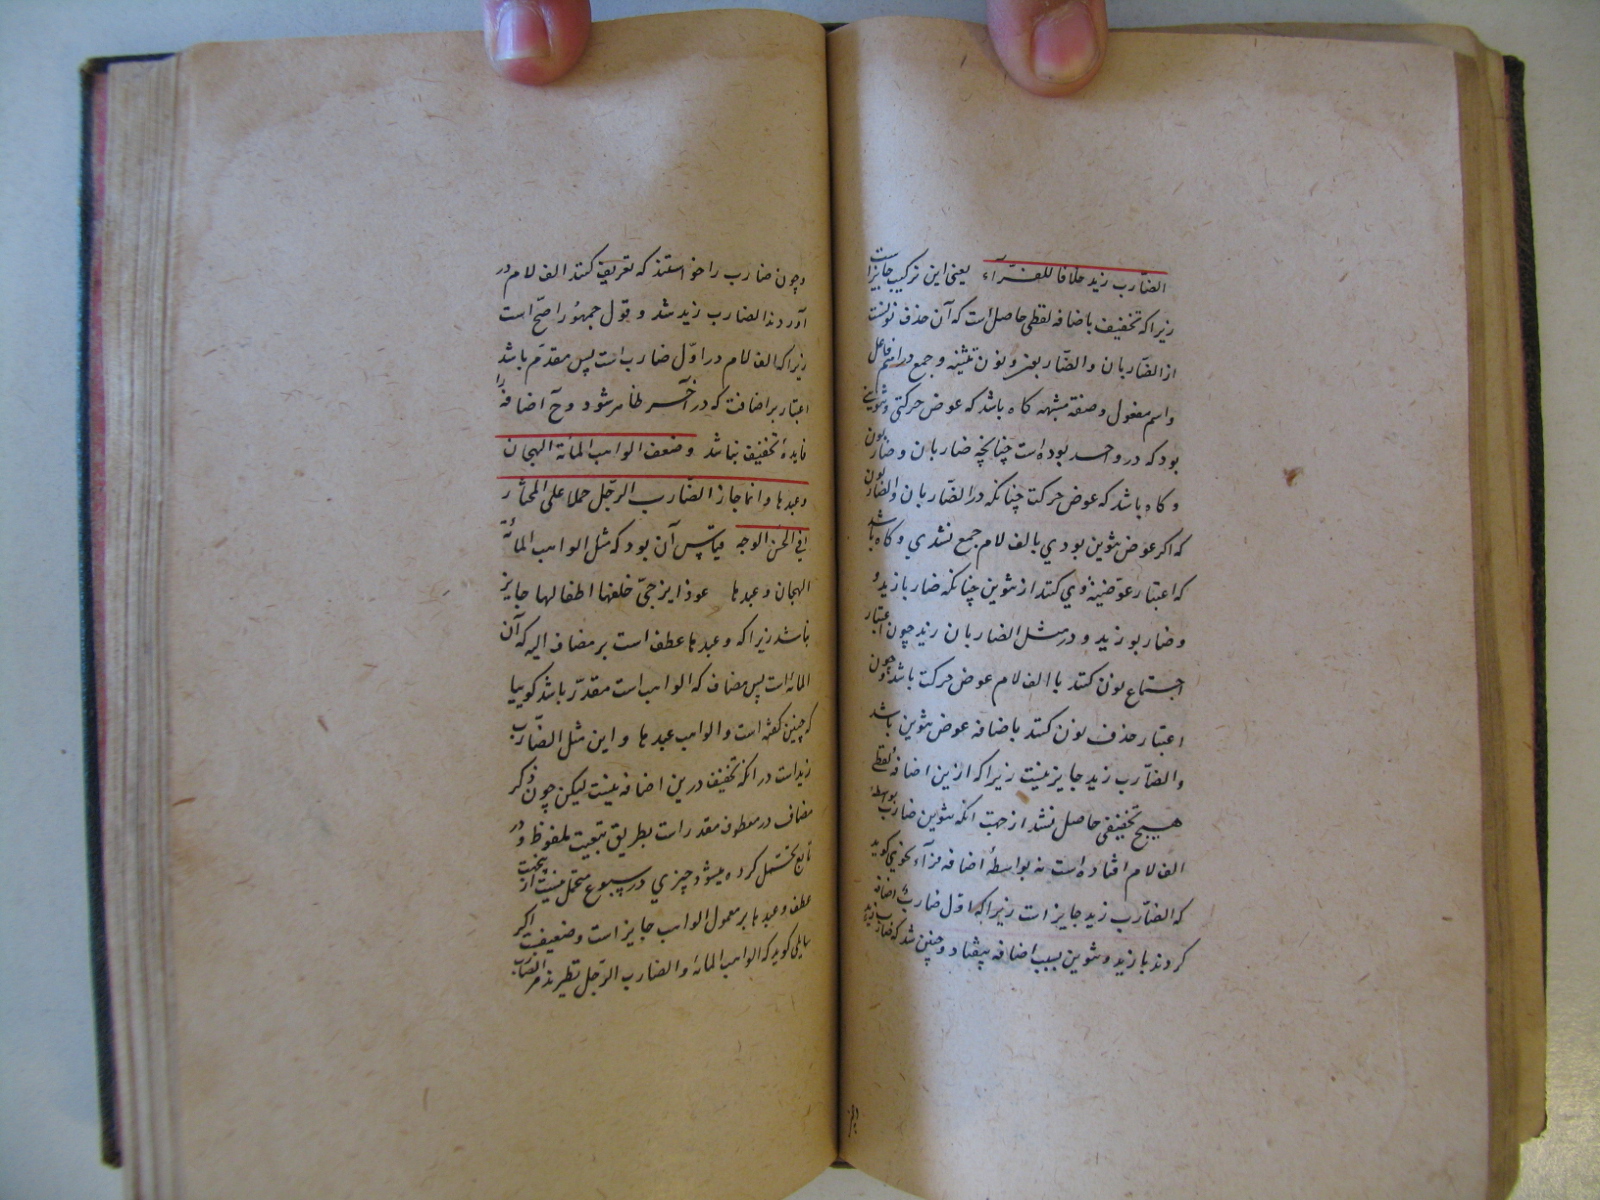 الضارب زید خلافا للفرّآء یعنی این ترکیب جایز است
زیرا که تخفیف باضافه لفظی حاصل است که آن حذف نونست
از الضّاربان والضّاربون ونون تثنیه وجمع در اسم فاعل
واسم مفعول وصفة مشبهه کاه باشد که عوض حرکتی وتنوینی
بود که در واحد بوده است چنانچه ضاربان وضاربون
وکاه باشد که عوض حرکت چنانکه در الضّاربان والضاربون
که اکر عوض تنوین بودی با الف لام جمع نشدی وکاه باشد
که اعتبار عوضیة وی کنند از تنوین چنانکه ضاربا زید
وضاربو زید ودر مثل الضاربان زید چون اعتبار
اجتماع نون کنند با الف لام عوض حرکت باشد وچون
اعتبار حذف نون کنند باضافه عوض تنوین باشد
والضّارب زید جایز نیست زیرا که ازین اضافه لفظی
هیچ تخفیفی حاصل نشد از جهت انکه تنوین ضارب بواسطهٔ
الف لام افتاده است نه بواسطهٔ اضافه فرّآء نحوی کوید
که الضّارب زید جایز است زیرا که اوّل ضارب اضافه
کردند با زید وتنوین بسبب اضافه بیفتاد وچنین شد که ضارب زید
وچون ضارب را خواستند که تعریف کنند الف لام در
آوردند الضارب زید شد وقول جمهور اصحّ است
زیرا که الف لام در اوّل ضارب است پس مقدّم باشد
اعتبار بر اضافت که در آخر ظاهر شود وح اضافه را
فایدهٔ تخفیف نباشد وضعف الواهب المائة الهجان
وعبدها وانما جاز الضارب الرّجل حملا علی المختار
فی الحسن الوجه قیاس آن بود که مثل الواهب المائة
الهجان وعبدها عوذا یزجی خلفها اطفالها جایز
نباشد زیرا که وعبدها عطف است بر مضاف الیه که آن
المائة است پس مضاف که الواهب است مقدّر باشد کوییا
که چنین کفته است والواهب عبدها واین مثل الضّارب
زید است در انکه تخفیف درین اضافه نیست لیکن چون ذکر
مضاف در معطوف مقدر است بطریق تبعیت ملفوظ ودر
تابع محتمل کرده میشود چیزی در متبوع متحمل نیست از ینجهت
عطف وعبدها بر معمول الواهب جایز است وضعیف اکر
سایلی کوید که الواهب المائة والضارب الرّجل نظیرند مر الضارب